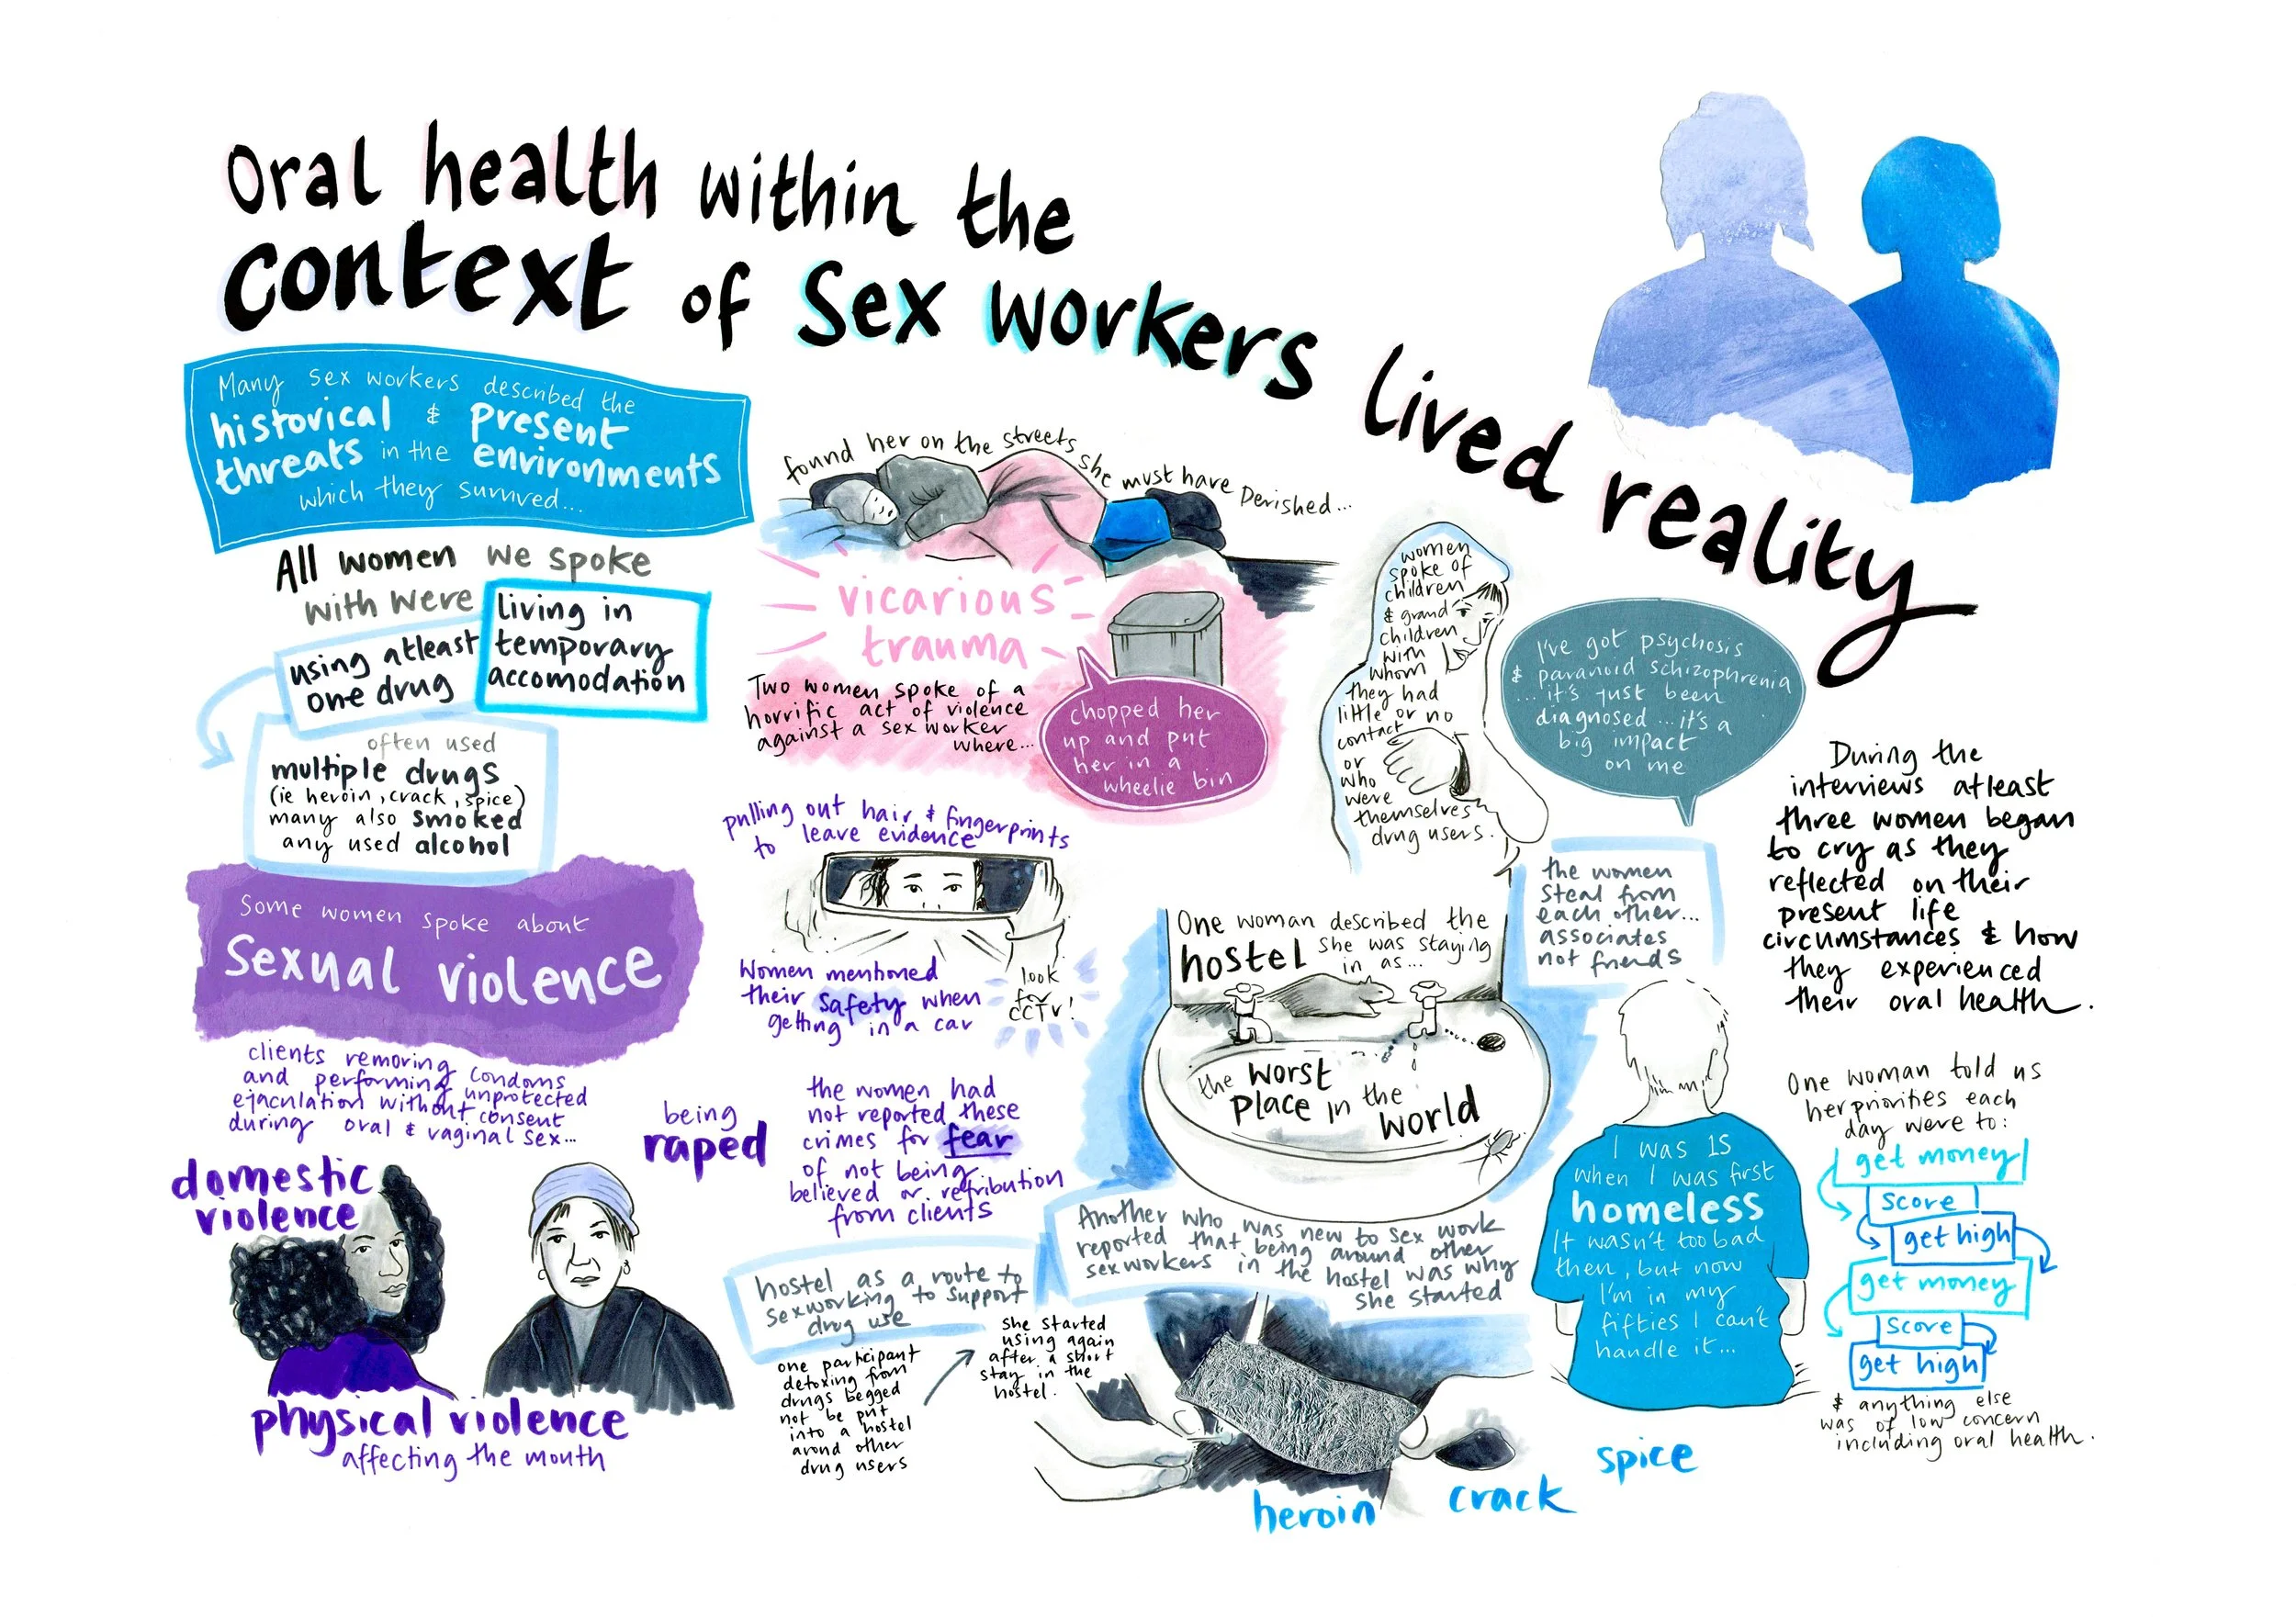 Oral health within the
context of Sex workers lived reality
Many sex workers described the
historical & present
threats in the environments
which they survived...
All women we spoke
with were
living in
temporary
accomodation
using atleast
one drug
often used
multiple drugs
(ie heroin, crack, spice)
many also smoked
any used alcohol
Some women spoke about
Sexual violence
clients removing condoms
and performing unprotected
ejaculation without consent
during oral & vaginal sex...
being
raped
domestic
violence
physical violence
affecting the mouth
found her on the streets she must have perished...
vicarious
trauma
Two women spoke of a
horrific act of violence
against a sex worker
where...
chopped her
up and put
her in a
wheelie bin
pulling out hair & fingerprints
to leave evidence
Women mentioned
their safety when
getting in a car
look
for
CCTV!
the women had
not reported these
crimes for fear
of not being
believed or retribution
from clients
hostel as a route to
sexworking to support
drug use
one participant
detoxing from
drugs begged
not be put
into a hostel
around other
drug users
she started
using again
after a short
stay in the
hostel.
women
spoke of
children
& grand
children
with
whom
they had
little or no
contact
or
who
were
themselves
drug users.
I've got psychosis
& paranoid schizophrenia
...it's just been
diagnosed...it's a
big impact
on me
the women
steal from
each other...
associates
not friends
One woman described the
hostel she was staying
in as...
the worst
place in the
world
Another who was new to sex work
reported that being around other
sexworkers in the hostel was why
she started
heroin
crack
spice
I was 15
when I was first
homeless
It wasn't too bad
then, but now
I'm in my
fifties I can't
handle it...
During the
interviews atleast
three women began
to cry as they
reflected on their
present life
circumstances & how
they experienced
their oral health.
One woman told us
her priorities each
day were to:
get money
score
get high
get money
score
get high
& anything else
was of low concern
including oral health.